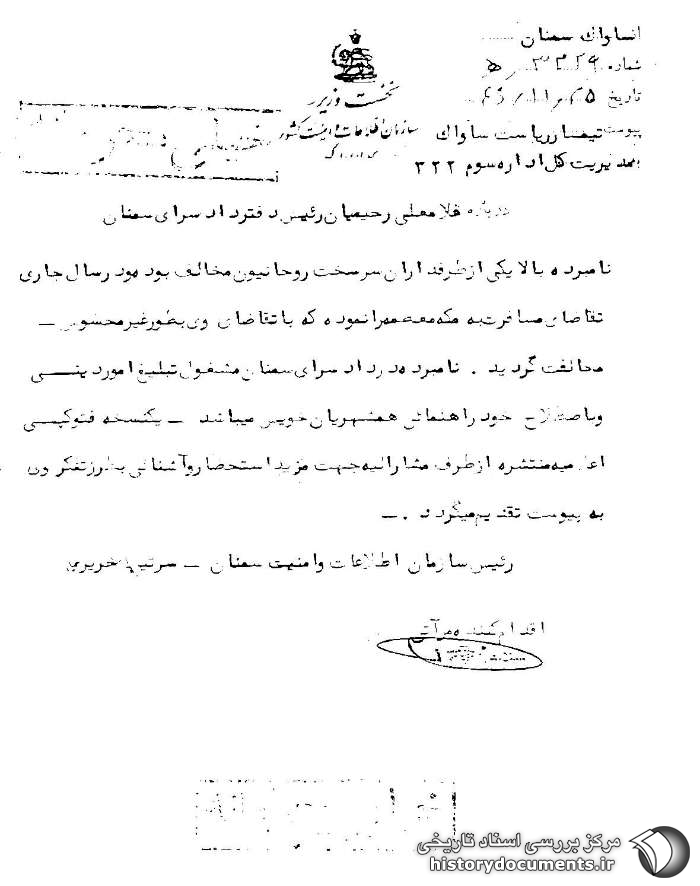 از ساواك سمنان
شماره ۳۳۲۹ / ه
تاریخ ۴۶/۱۱/۲۵
نخست وزیر
سازمان اطلاعات و امنیت کشور
س.ا.و.ا.ك
پیوست
تیمسار ریاست ساواك
مدیریت کل اداره سوم ۳۲۲
درباره غلامعلی رحیمیان رئیس دفتر دادسرای سمنان
نامبرده بالا یکی از طرفداران سرسخت روحانیون مخالف بوده و در سال جاری
تقاضای مسافرت به مکه معظمه را نموده که با تقاضای وی بطور غیر محسوس –
مخالفت گردید . نامبرده در دادسرای سمنان مشغول تبلیغ امور دینی
وباصطلاح خود راهنمائی همشهریان خویش میباشد – یکنسخه فتوکپی
اعلامیه منتشره از طرف مشارالیه جهت مزید استحضار و آشنائی بطرز تفکر
به پیوست تقدیم میگردد . –
رئیس سازمان اطلاعات وامنیت سمنان – سرتیپ حریری
اقدام کننده
مرکز بررسی اسناد تاریخی
historydocuments.ir